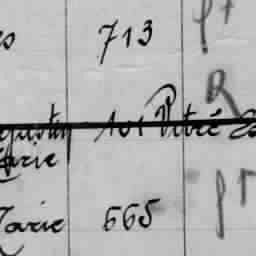 es 713 pt
R
gustin 101 Vitré
Marie
Marie 665 pr